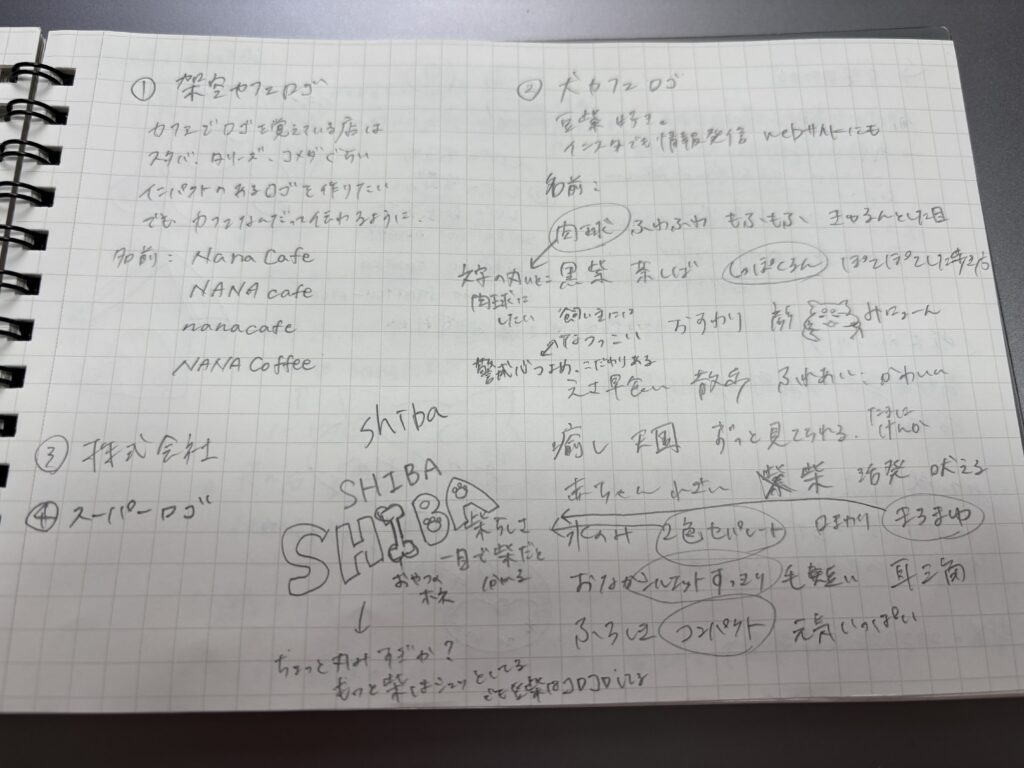 ① 架空カフェロゴ
カフェでロゴを覚えている店は
スタバ、タリーズ、コメダぐらい
インパクトのあるロゴを作りたい
でもカフェなんだって伝わるように.
名前: Nana Cafe
NANA cafe
nanacafe
NANA Coffee
③ 株式会社
④ スーパーロゴ
② 犬カフェロゴ
豆柴 好き。
インスタでも情報発信 webサイトにも
名前:
肉球 ふわふわ もふもふ まるんとした目
文字の丸いと=
肉球に
したい
黒柴 茶しば しっぽくるん
飼い主には
なつっこい
おすわり 顔
警戒心つよめ、こだわりある
えさ早食い 散歩 ふれあい かわいい
癒し 天国 ずっと見てられる.
たまに
けんか
赤ちゃん 小さい 柴 活発 吠える
水のみ 2色セパレート 口まわり まろまゆ
おなか シルエットすっきり 毛短い 耳三角
ふろしき コンパクト 元気いっぱい
shiba
SHIBA
SHIBA
柴らしさ
一目で柴だと
おやつの
ホネ
↓
ちょっと丸みすぎか?
もっと柴はシュッとしてる
でも豆柴はコロコロしてる